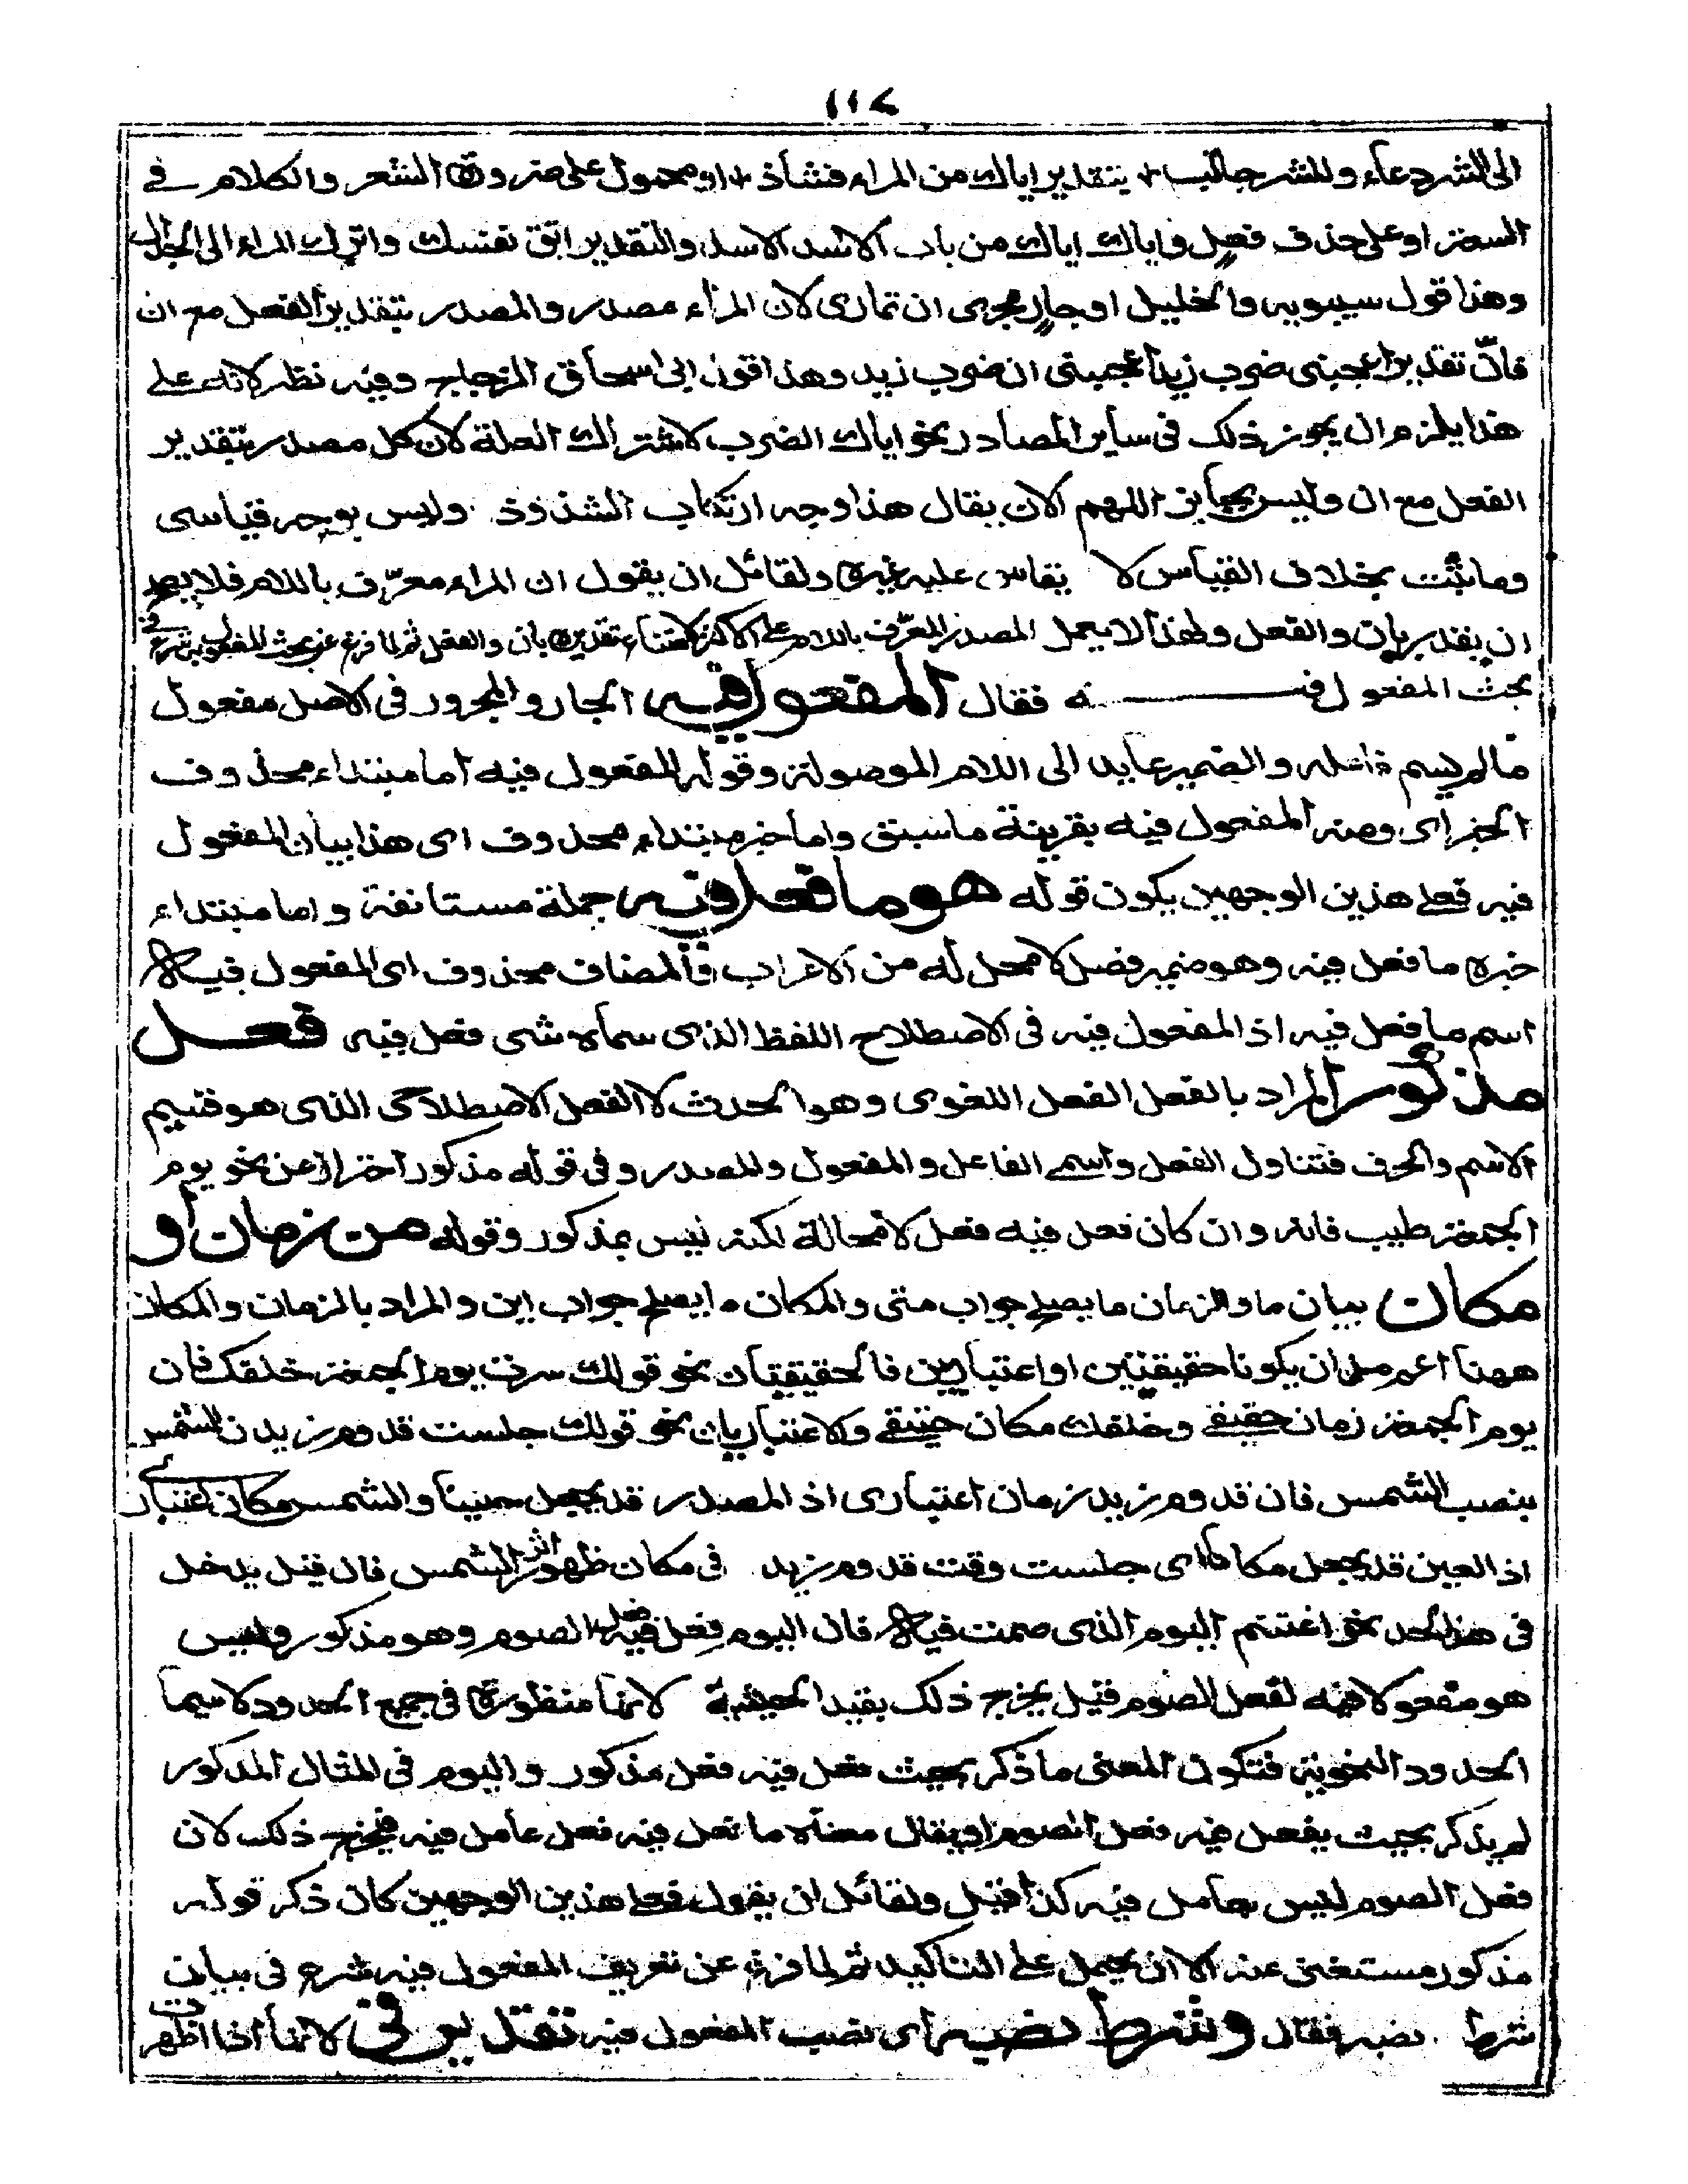 ١١٧
الى الشر دعاء وللشر جالب بتقدير اياك من المراء فشاذ او محمول على ضرورة الشعر والكلام فى
السعة او على حذف فعل واياك اياك من باب الاسد الاسد والتقدير اتق نفسك واترك المراء الى الجدال
وهذا قول سيبويه والخليل او جار مجرى ان تمارى لان المراء مصدر والمصدر بتقدير الفعل مع ان
فانّ تقدير اعجبنى ضرب زيد اعجبنى ان ضرب زيد وهذا قول ابى اسحاق الزجاج وفيه نظر لانه على
هذا يلزم ان يجوز ذلك فى ساير المصادر نحو اياك الضرب لاشتراك العلة لان كل مصدر بتقدير
الفعل مع ان وليس بجايز اللهم الا ان يقال هذا وجه ارتكاب الشذوذ وليس بوجه قياسى
وما يثبت بخلاف القياس لا يقاس عليه غيره ولقائل ان يقول ان المراء معرّف باللام فلا يصح
ان يقدر بان والفعل ولهذا لا يعمل المصدر المعرّف باللام على الاكثر لامتناع تقديره بان والفعل ثم لما فرغ عن بحث المفعول به شرع فى
بحث المفعول فيه فقال المفعول فيه الجار والمجرور فى الاصل مفعول
ما لم يسم فاعله والضمير عايد الى اللام الموصولة وقوله المفعول فيه اما مبتداء محذوف
الخبر اى ومنه المفعول فيه بقرينة ما سبق واما خبر مبتداء محذوف اى هذا بيان المفعول
فيه فعلى هذين الوجهين يكون قوله هو ما فعل فيه جملة مستانفة واما مبتداء
خبره ما فعل فيه وهو ضمير فصل لا محل له من الاعراب فالمضاف محذوف اى المفعول فيه
اسم ما فعل فيه اذ المفعول فيه فى الاصطلاح اللفظ الذى سماه شى فعل فيه فعل
مذكور المراد بالفعل الفعل اللغوى وهو الحدث لا الفعل الاصطلاحى الذى هو قسيم
الاسم والحرف فتناول الفعل واسمى الفاعل والمفعول والمصدر وفى قوله مذكور احتراز عن نحو يوم
الجمعة طيب فانه وان كان فعل فيه فعل لا محالة لكنه ليس بمذكور وقوله من زمان او
مكان بيان ما والزمان ما يصلح جواب متى والمكان ما يصلح جواب اين والمراد بالزمان والمكان
ههنا اعم من ان يكونا حقيقيين او اعتباريين فالحقيقيان نحو قولك سرت يوم الجمعة خلفك فان
يوم الجمعة زمان حقيقى وخلفك مكان حقيقى والاعتباريان نحو قولك جلست قدوم زيدن الشمس
بنصب الشمس فان قدوم زيد زمان اعتبارى اذ المصدر قد يجعل حينا والشمس مكان اعتبارى
اذ العين قد يجعل مكانا اى جلست وقت قدوم زيد فى مكان ظهور اثر الشمس فان قيل يدخل
فى هذا الحد نحو اغتنم اليوم الذى صمت فيه فان اليوم فعل فيه فعل الصوم وهو مذكور وليس
هو مفعولا فيه لفعل الصوم قيل يخرج ذلك بقيد الحيثية لانها منظورة فى جميع الحدود لا سيما
الحدود النحوية فتكون المعنى ما ذكر بحيث فعل فيه فعل مذكور واليوم فى المثال المذكور
لم يذكر بحيث يفعل فيه فعل الصوم او يقال معناه ما فعل فيه فعل عامل فيه فيخرج ذلك لان
فعل الصوم ليس بعامل فيه كذا قيل ولقائل ان يقول فعلى هذين الوجهين كان ذكر قوله
مذكور مستغنى عنه الا ان يحمل على التاكيد ثم لما فرغ عن تعريف المفعول فيه شرع فى بيان
شرط نصبه فقال وشرط نصبه اى نصب المفعول فيه تقدير فى لانها اذا ظهرت